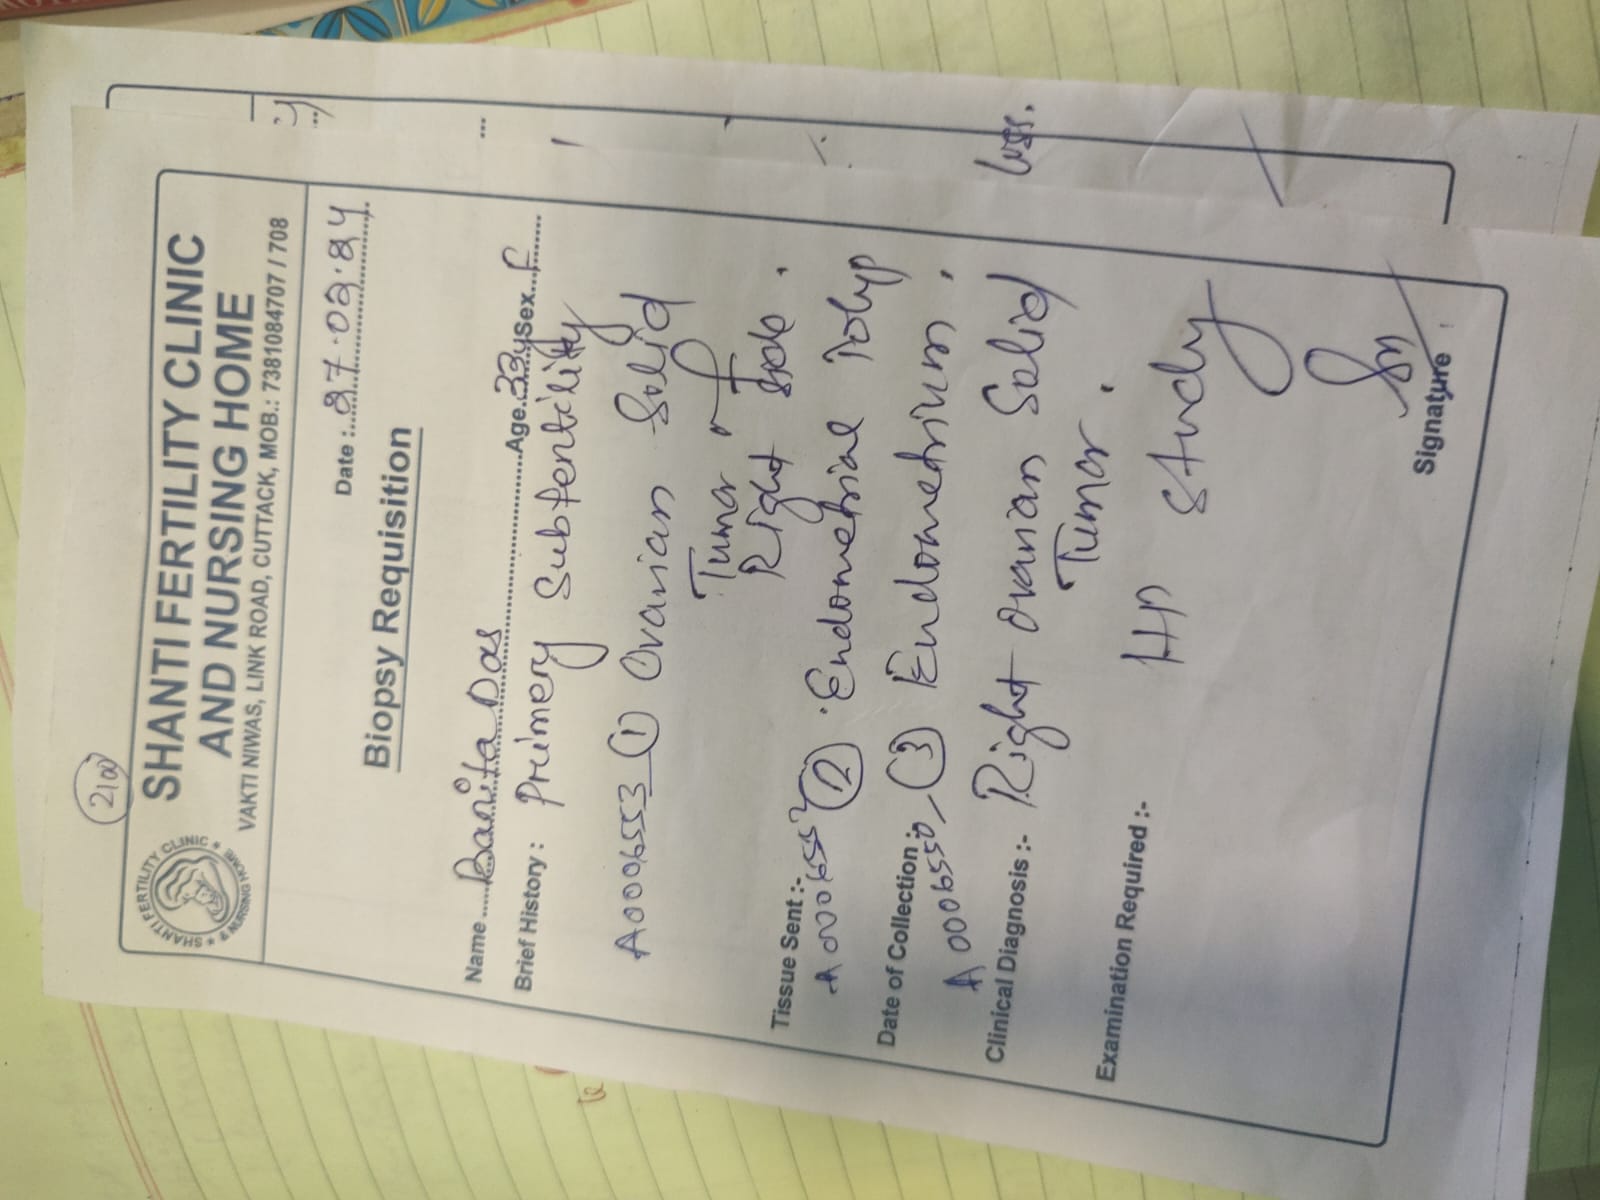 2100
SHANTI FERTILITY CLINIC
AND NURSING HOME
VAKTI NIWAS, LINK ROAD, CUTTACK, MOB.: 7381084707 / 708
SHANTI FERTILITY CLINIC
& NURSING HOME
Date :..27.02.24
Biopsy Requisition
Name ..... Banita Das ..........Age. 33y Sex..F......
Brief History : Primery Subfertility
A0006553 (1) Ovarian Solid
Tumor of
Right Side.
Tissue Sent :-
(2) Endometrial Polyp
Date of Collection :- (3) Endometrium.
A0006550
Clinical Diagnosis :- Right Ovarian Solid
Tumor.
Examination Required :-
HP Study
Signature